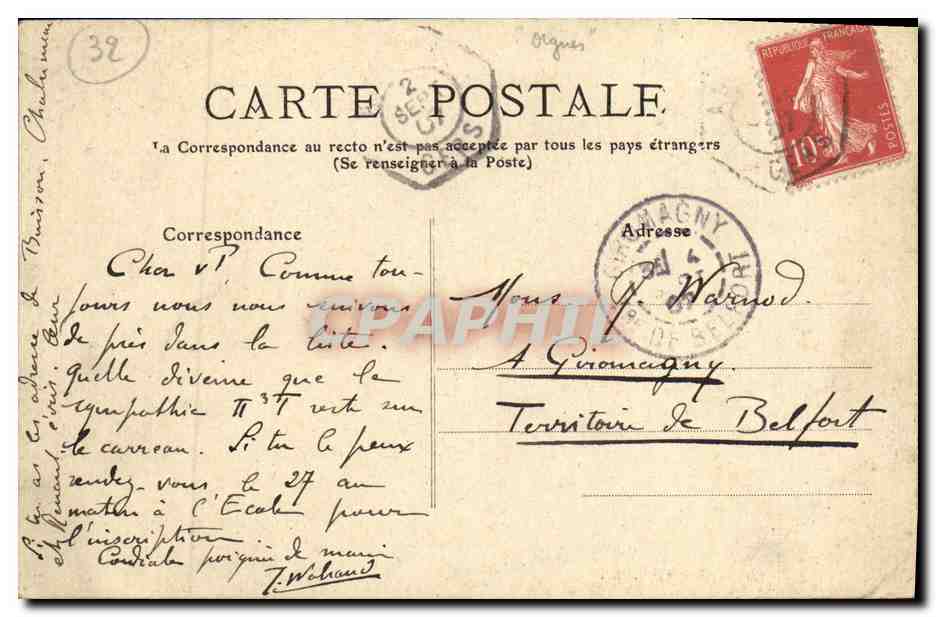 32
"Orgues"
CARTE POSTALE
La Correspondance au recto n'est pas acceptée par tous les pays étrangers
(Se renseigner à la Poste)
REPUBLIQUE FRANÇAISE
POSTES
10
2
SEPT
GERS
Correspondance
Adresse
GIROMAGNY
4
Trre DE BELFORT
Cher vx Comme tou-
jours nous nous suivons
de près dans la liste.
Quelle divine que la
sympathie reste sur
le carreau. Si tu le peux
rendez-vous le 27 au
matin à l'Ecole pour
l'inscription.
Cordiale poignée de main
Mons. Warnod.
A Giromagny.
Territoire de Belfort
Si tu as les adresse de Buisson, Chalumeau
et Renard, écris-leur
DELPAPHIL